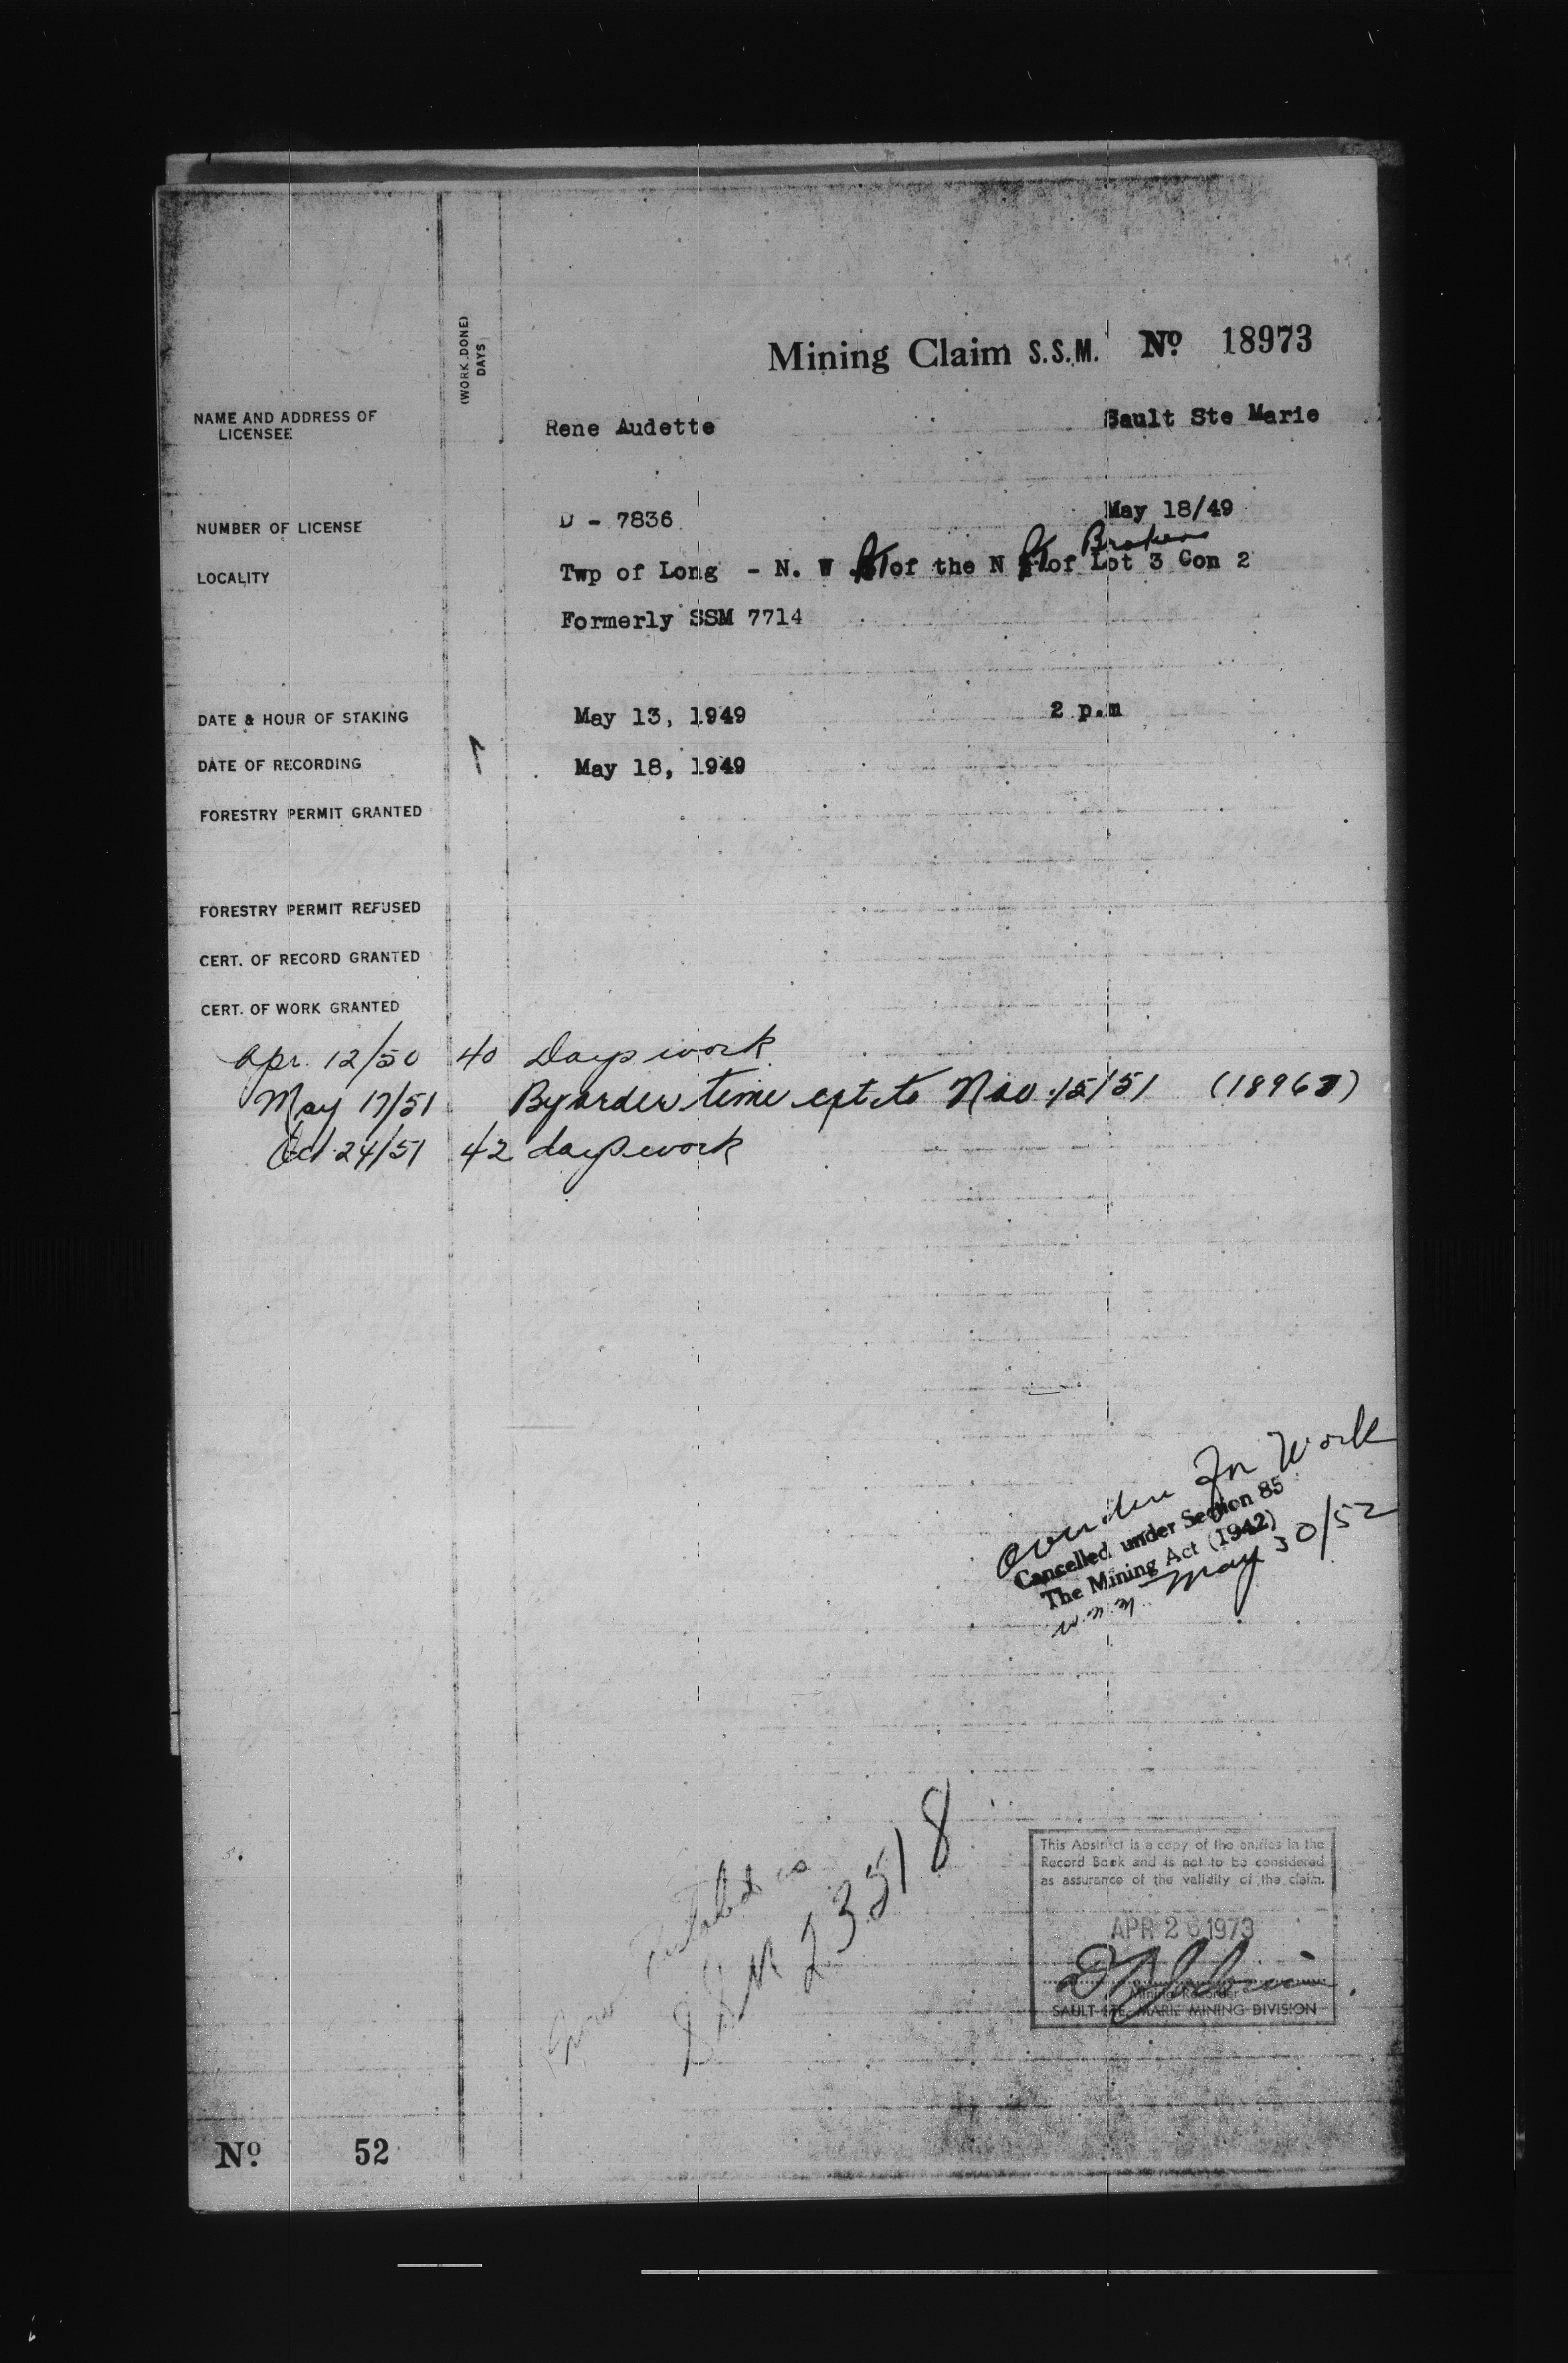 (WORK DONE)
DAYS
Mining Claim S.S.M. Nº 18973
NAME AND ADDRESS OF
LICENSEE
Rene Audette Sault Ste Marie
NUMBER OF LICENSE D - 7836 May 18/49
Broken
LOCALITY Twp of Long - N. W pt of the N pt of Lot 3 Con 2
Formerly SSM 7714
DATE & HOUR OF STAKING May 13, 1949 2 p.m
DATE OF RECORDING May 18, 1949
FORESTRY PERMIT GRANTED
FORESTRY PERMIT REFUSED
CERT. OF RECORD GRANTED
CERT. OF WORK GRANTED
Apr. 12/50 40 Days work
May 17/51 By order time ext. to Nov 15/51
Oct 24/51 42 days work
overdue for Work
Cancelled under Section 85
The Mining Act (1942)
May 30/52
SSM 23518
This Abstract is a copy of the entries in the
Record Book and is not to be considered
as assurance of the validity of the claim.
APR 26 1973
Mining Recorder
SAULT STE. MARIE MINING DIVISION
Nº 52